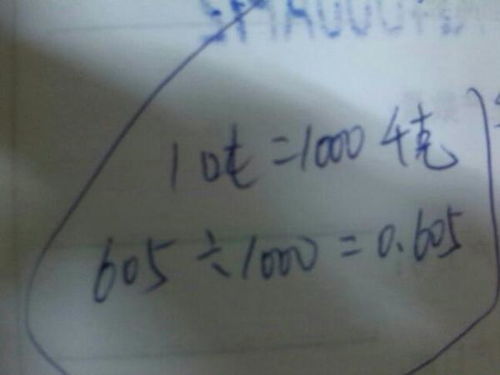 1吨=1000千克
605÷1000=0.605